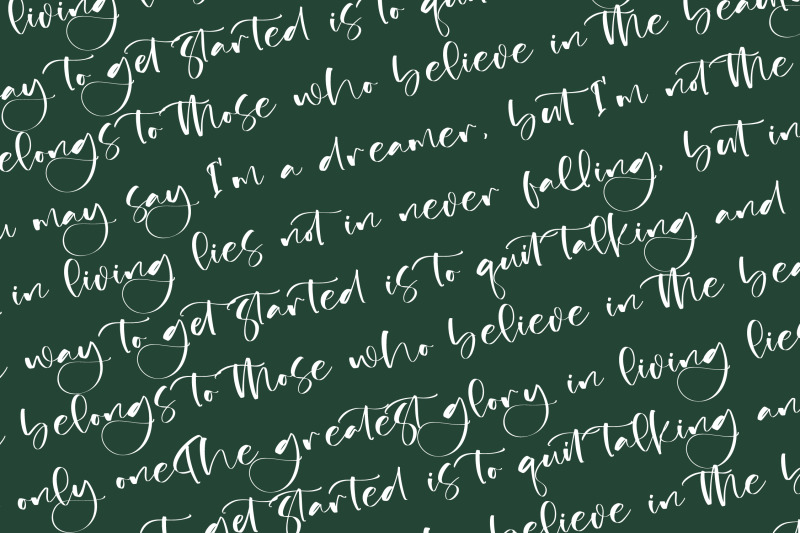 living
ay to get started is to
elongs to those who believe in the
may say I'm a dreamer, but I'm not the
in living lies not in never falling, but in
way to get started is to quit talking and
belongs to those who believe in the
only one The greatest glory in living lies
to get started is to quit talking
believe in the